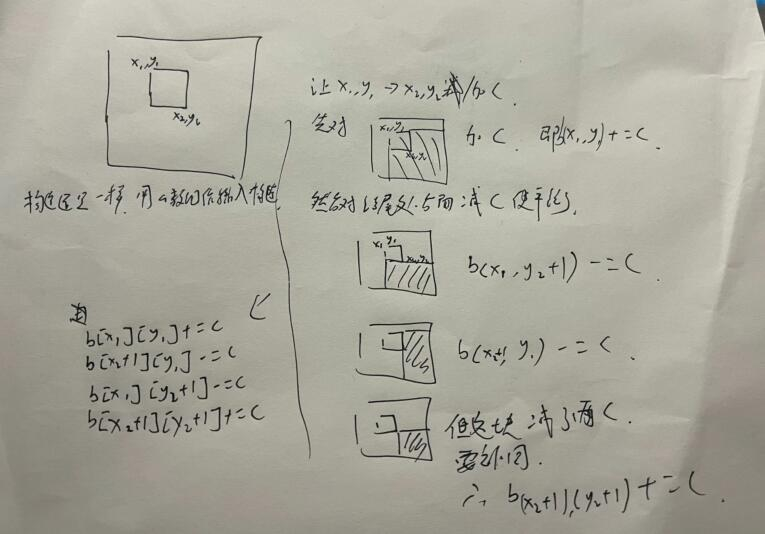 x₁,y₁
x₂,y₂
构造还是一样,用a数组依输入构造,
b[x₁][y₁]+=c
b[x₂+1][y₁]-=c
b[x₁][y₂+1]-=c
b[x₂+1][y₂+1]+=c
让x₁,y₁→x₂,y₂加c.
先对
x₁,y₁
x₂,y₂
加c. 即(x₁,y₁)+=c.
然后对结尾处后面减c使平衡,
x₁ y₁
x₂,y₂
b(x₁,y₂+1)-=c.
b(x₂+1,y₁)-=c.
但这块减了两c.
要补回.
∴ b(x₂+1),(y₂+1)+=c.